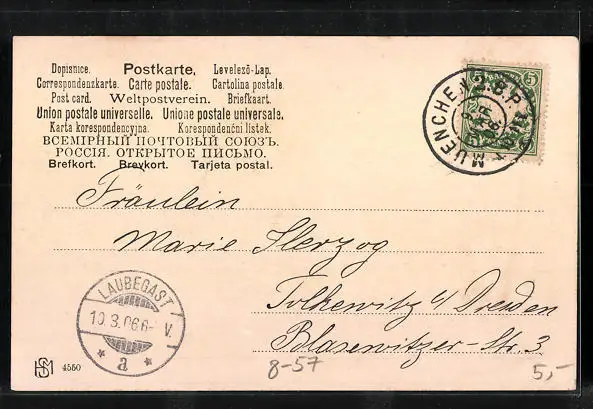 Dopisnice. Postkarte. Levelezö-Lap.
Correspondenzkarte. Carte postale. Cartolina postale.
Post card. Weltpostverein. Briefkaart.
Union postale universelle. Unione postale universale.
Karta korespondencyjna. Korespondenční lístek.
ВСЕМІРНЫЙ ПОЧТОВЫЙ СОЮЗЪ.
РОССІЯ. ОТКРЫТОЕ ПИСЬМО.
Brefkort. Brevkort. Tarjeta postal.
5
MUENCHEN 2. B.P.
9 MAR
Fräulein
Marie Herzog
Tolkewitz b/ Dresden
Blasewitzer-Str. 3
LAUBEGAST
10.3.06.6- V.
* a *
HSM 4550
8-57
5,-